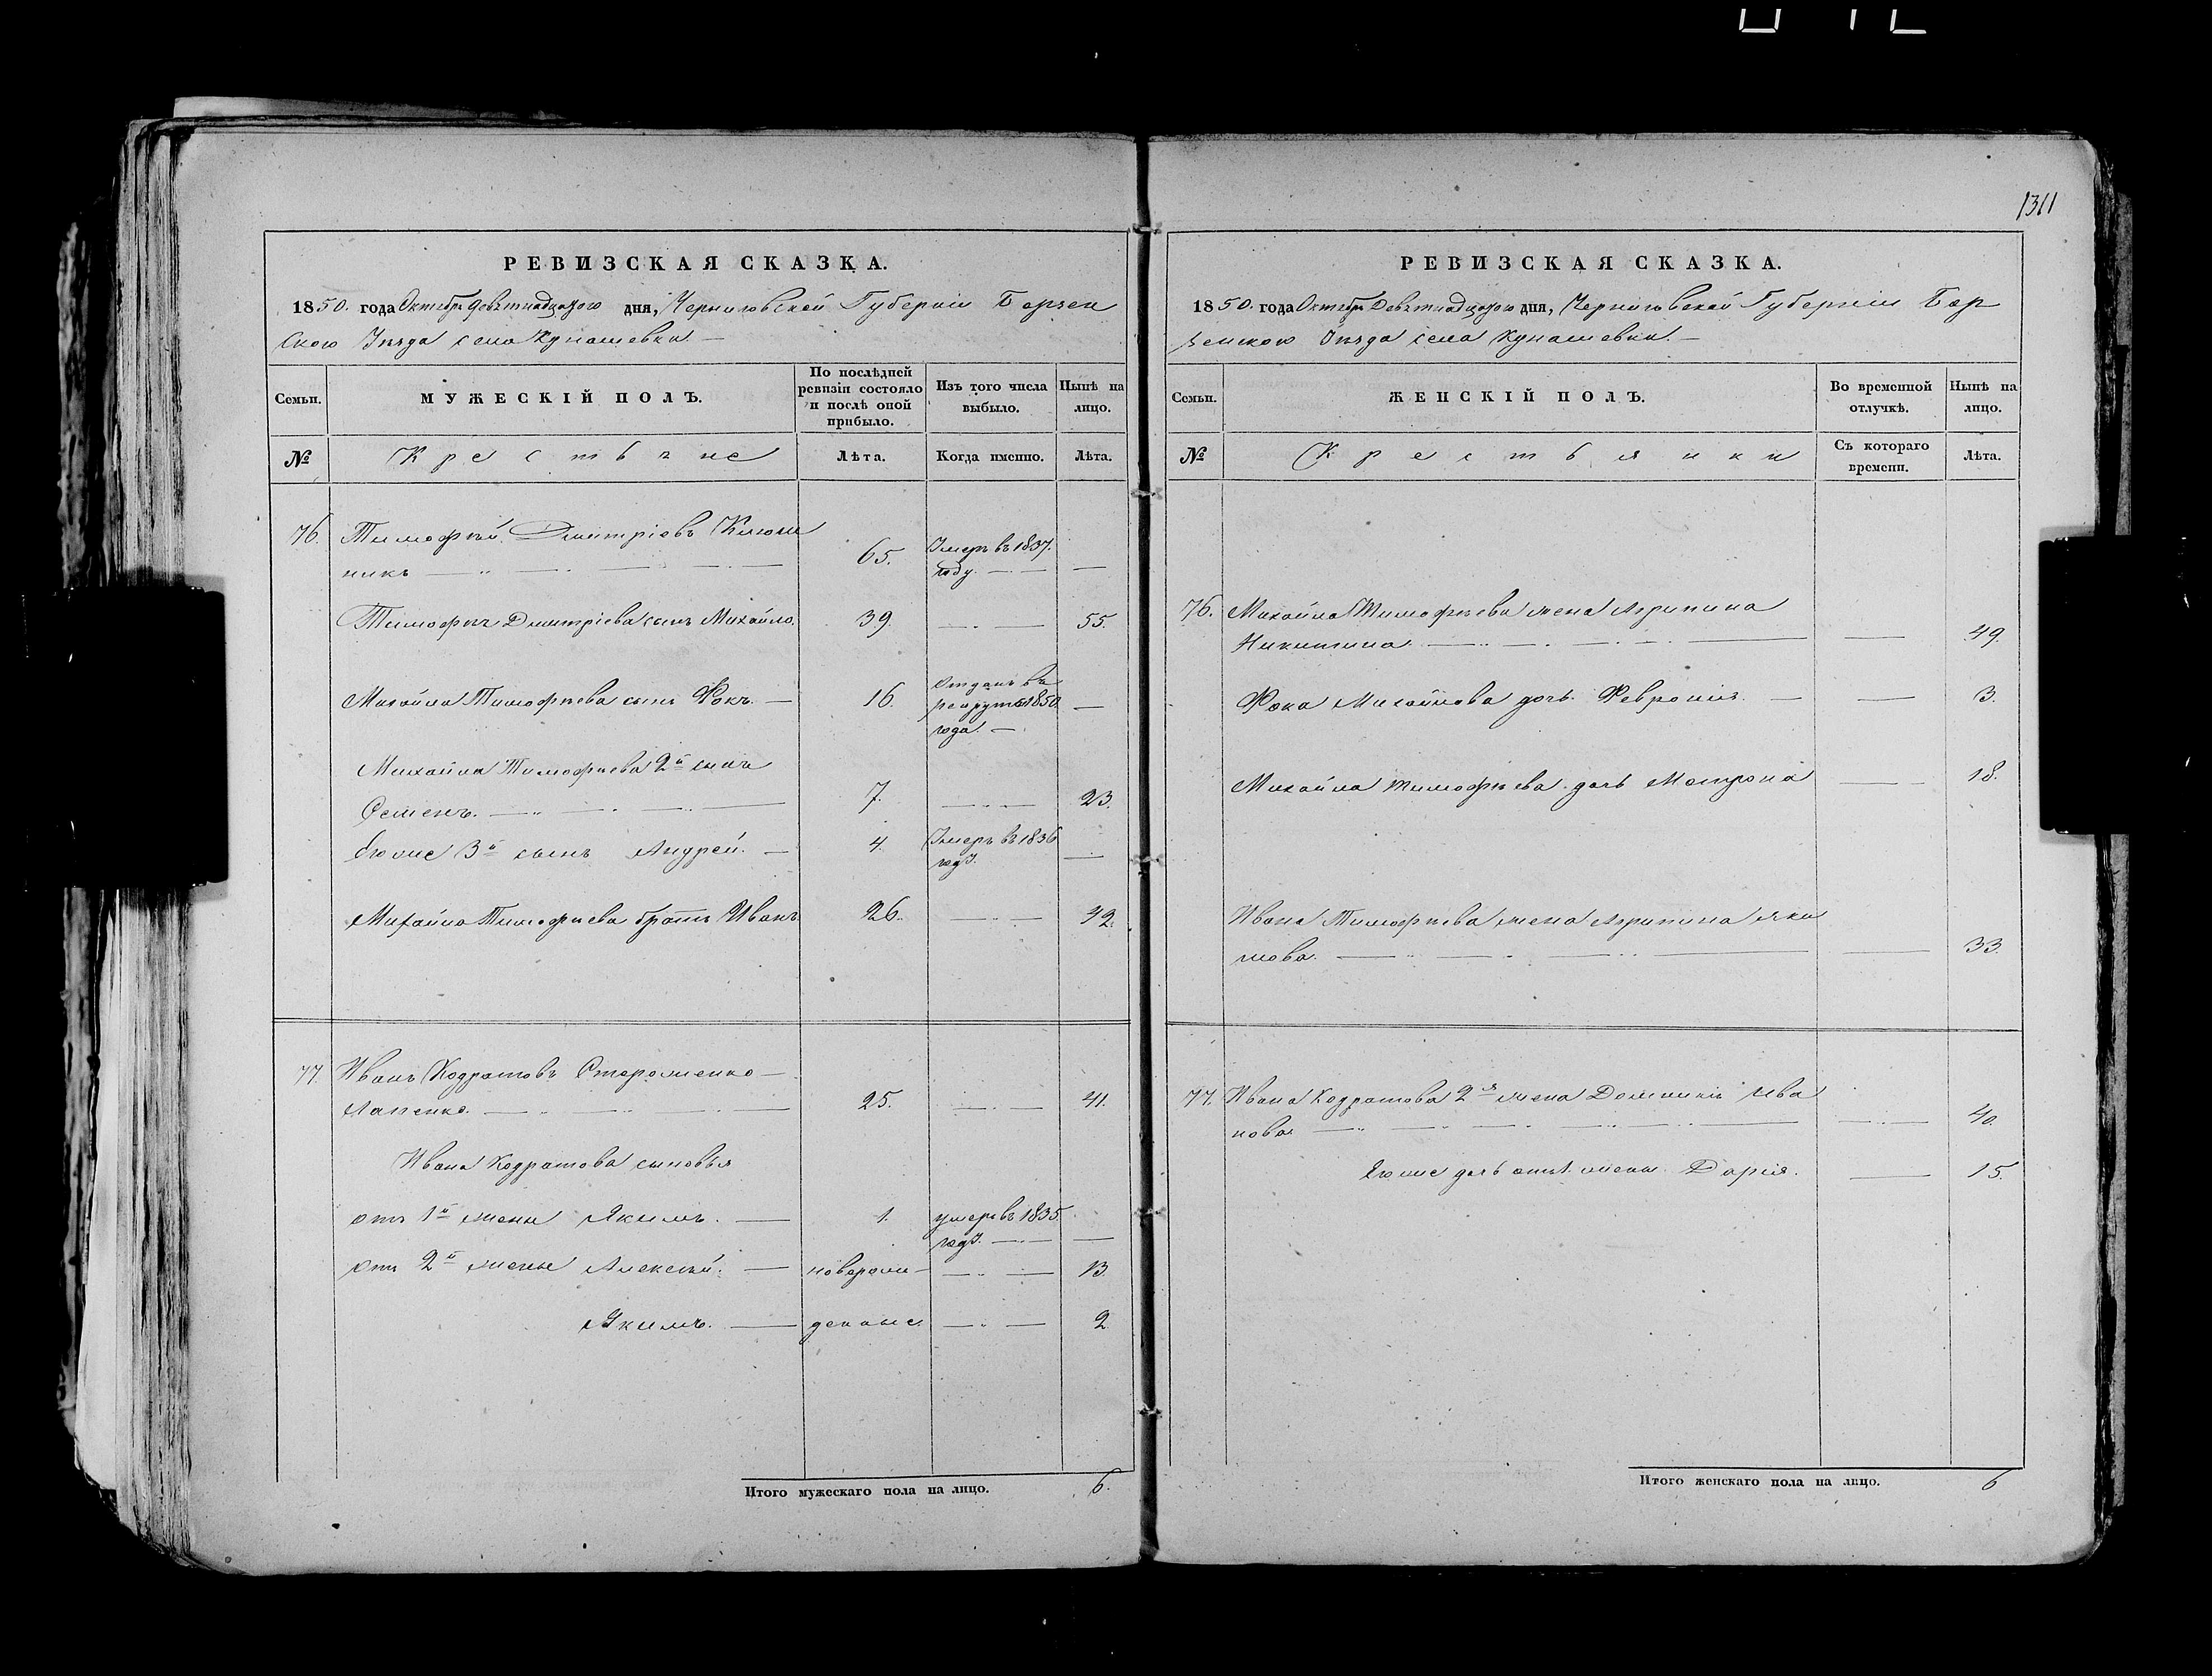 1311
РЕВИЗСКАЯ СКАЗКА.
1850. года Октября девятнадцатого дня, Черниговской Губерніи Борзен
ского Уѣзда села Кунашевки. —
Семьи. МУЖЕСКІЙ ПОЛЪ. По послѣдней ревизіи состояло и послѣ оной прибыло. Изъ того числа выбыло. Нынѣ на лицо.
№ Крестьяне Лѣта. Когда именно. Лѣта.
76. Тимофей Дмитріевъ Ключ
никъ — 65. Умеръ въ 1837. году. — —
Тимофея Дмитріева сынъ Михайло. 39. — 55.
Михайла Тимофѣева сынъ Фокъ. — 16. Отданъ въ рекруты 1850. года. — —
Михайла Тимофѣева 2й сынъ
Семенъ. — 7. — 23.
Его же 3й сынъ Андрей. — 4. Умеръ въ 1836 году. —
Михайла Тимофѣева братъ Иванъ 26. — 42.
77. Иванъ Кодратовъ —
Лапенко. — 25. — 41.
Ивана Кодратова сыновья
отъ 1й жены Якимъ. — 1. умеръ въ 1835. году. — —
отъ 2й жены Алексѣй. — новорож- — 13.
Якимъ. — денные. — 2.
Итого мужескаго пола на лицо. 6.
РЕВИЗСКАЯ СКАЗКА.
1850. года Октября Девятнадцатого дня, Черниговской Губерніи Бор
зенского Уѣзда села Кунашевки. —
Семьи. ЖЕНСКІЙ ПОЛЪ. Во временной отлучкѣ. Нынѣ на лицо.
№ Крестьянки Съ котораго времени. Лѣта.
76. Михайла Тимофѣева жена Агрипина
Никитина. — — 49.
Фока Михайлова дочь Февронія. — — 3.
Михайла Тимофѣева дочь Матрона — 18.
Ивана Тимофѣева жена Агрипина Яки
мова. — — 33.
77. Ивана Кодратова 2я жена Домникія Ива
нова — — 40.
Его же дочь отъ 1. жены Дарія. — 15.
Итого женскаго пола на лицо. 6